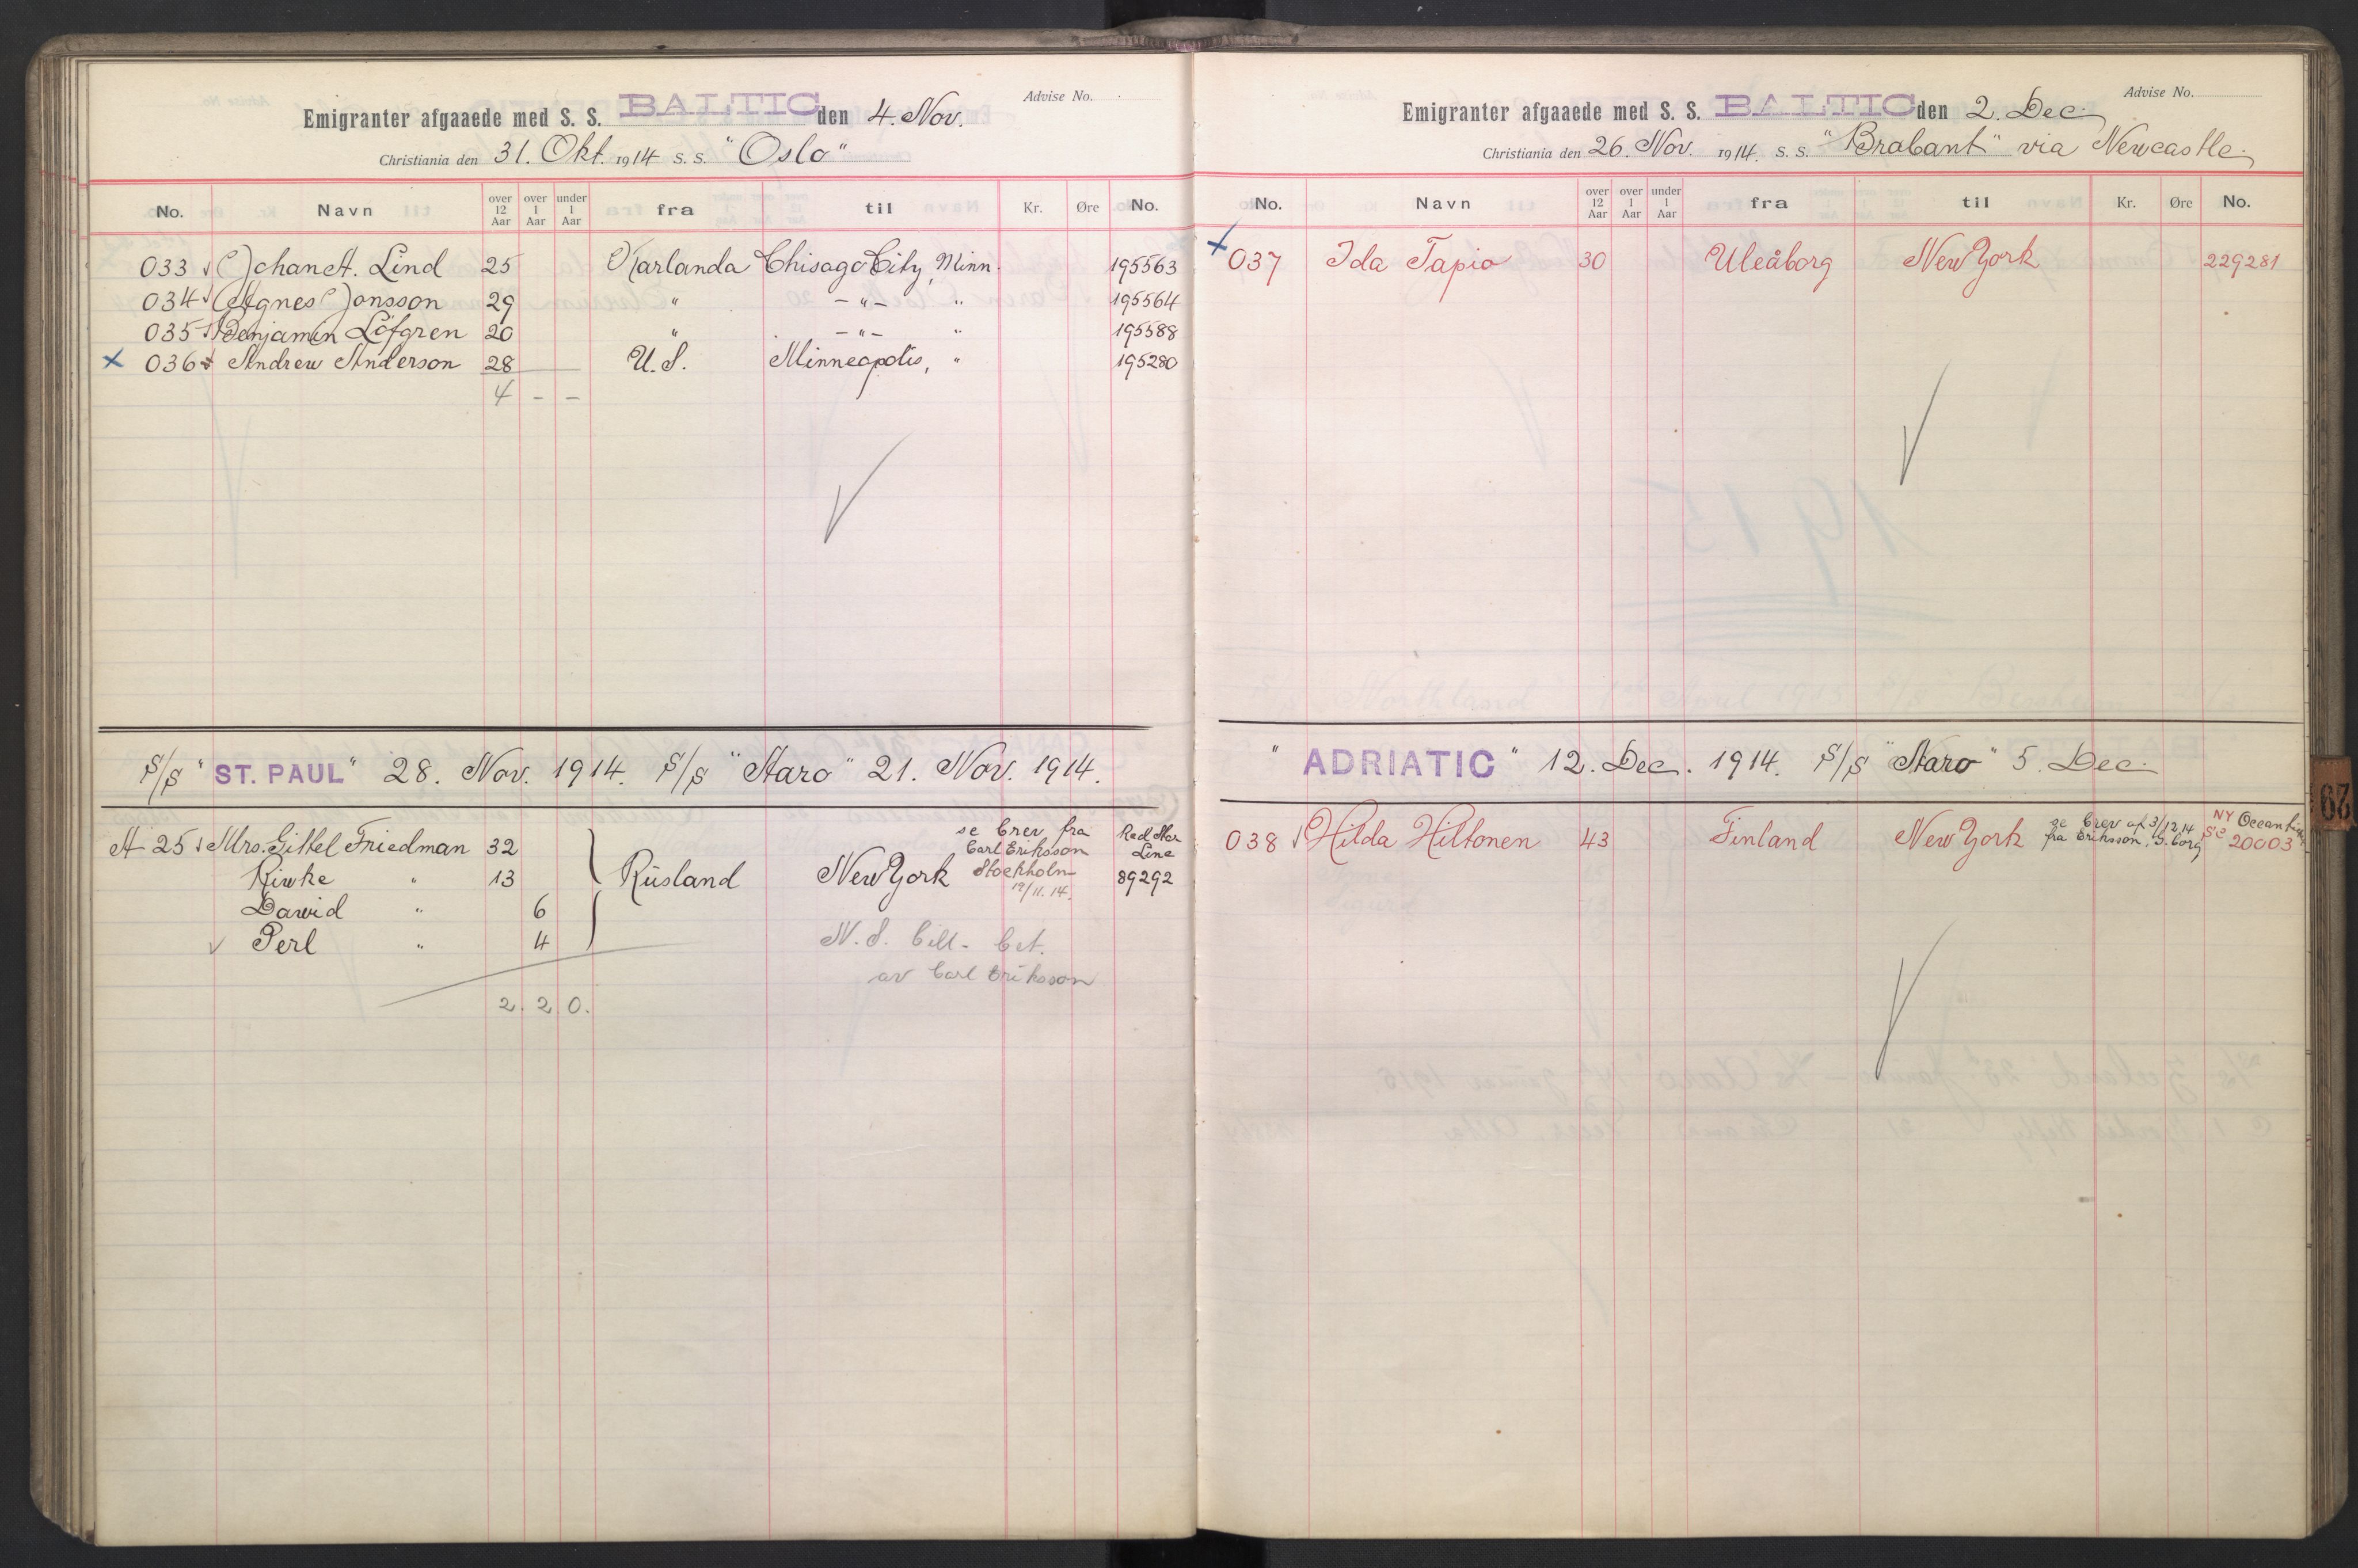 Advise No.
Emigranter afgaaede med S. S. BALTIC den 4. Nov.
Christiania den 31. Okt. 1914 S. S. "Oslo"
No. Navn over 12 Aar over 1 Aar under 1 Aar fra til Kr. Øre No.
033 Johan A. Lind 25 Karlanda Chisago City, Minn. 195563
034 Agnes Jonsson 29 " -"- " 195564
035 Benjamin Löfgren 20 " -"- " 195588
x 036 Andrew Anderson 28 U.S. Minneapolis, " 195280
4 - -
S/S "ST. PAUL" 28. Nov. 1914. S/S "Aaro" 21. Nov. 1914.
A 25 Mrs. Gittel Friedman 32 se brev fra Red Star
Carl Eriksson Line
Riwke " 13 Rusland New York Stockholm 89292
19/11.14.
Dawid " 6
Perl " 4 N.S. bill. bet.
av Carl Eriksson
2. 2 0.
Advise No.
Emigranter afgaaede med S. S. BALTIC den 2. Dec.
Christiania den 26. Nov. 1914. S. S. "Brabant" via Newcastle.
No. Navn over 12 Aar over 1 Aar under 1 Aar fra til Kr. Øre No.
x 037 Ida Tapio 30 Uleåborg New York 229281
"ADRIATIC" 12. Dec. 1914. S/S "Aaro" 5. Dec.
038 Hilda Hiltonen 43 Finland New York se brev af 3/12.14 NY Ocean
fra Eriksson, G.borg 20003
29